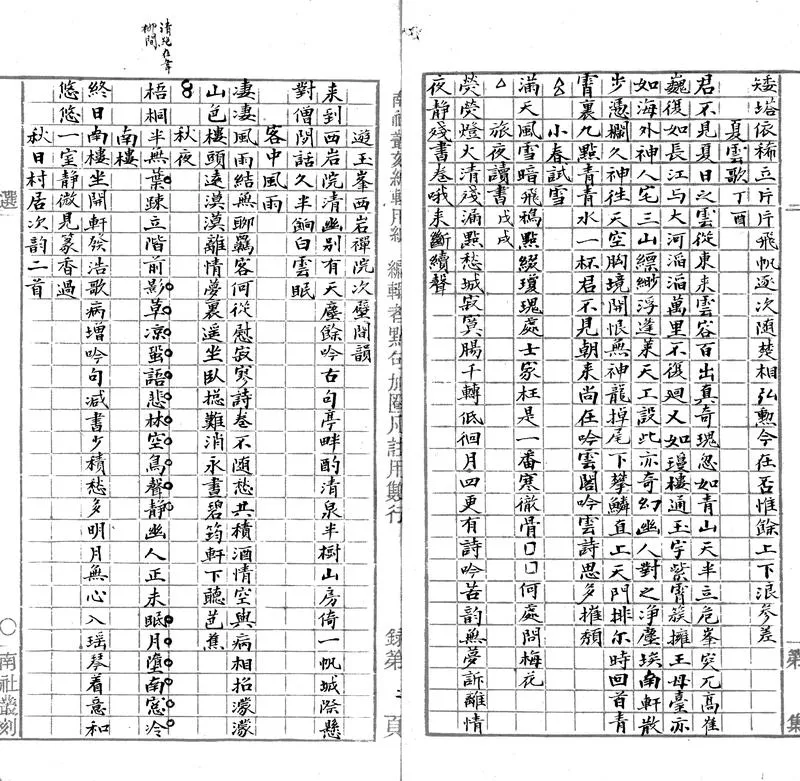 矮塔依稀立片片飛帆逐次随焚相弘勲今在否惟餘上下浪參差
夏雲歌丁酉
君不見夏日之雲從東来雲容百出真奇瑰忽如青山天半立危峯突兀髙崔
巍復如長江与大河滔滔萬里不復廻又如瓊樓通玉宇紫霄簇擁王母臺亦
如海外神人宅三山縹緲浮蓬莱天工設此亦奇幻幽人對之净塵埃南軒散
步憑欄久神往天空胸境開恨無神龍掉尾下攀鱗直上天門排尔時回首青
霄裏九點青青水一杯君不見朝来尚在吟雲閣吟雲詩思多摧頽
小春試雪
滿天風雪暗飛鴉點綴瓊瑰處士家枉是一番寒徹骨口口何處問梅花
旅夜讀書戊戌
熒熒燈火清殘漏點愁城寂寞腸千轉低徊月四更有詩吟苦韵無夢訴離情
夜静殘書卷哦来斷續聲
遊玉峯西岩禪院次壁間韻
来到西岩院清幽别有天塵餘吟古句亭畔酌清泉半樹山房倚一帆城際懸
對僧閒話久半餉白雲眠
客中風雨
凄凄風雨結無聊羈客何從慰寂寥詩卷不随愁共積酒情空與病相招濛濛
山色樓頭遠漠漠離情夢裏遥坐臥揔難消永晝碧筠軒下聽芭蕉
秋夜
梧桐半無葉踈立階前影草凉蛩語悲林空鳥聲静幽人正未眠月墮南窓冷
南樓
終日南樓坐開軒發浩歌病增吟句减書少積愁多明月無心入瑶琴着意和
悠悠一室静微見篆香過
秋日村居次韵二首
南社叢刻編輯用紙 編輯者點句加圈凡註用數行
録第 頁
第 集
選
南社叢刻